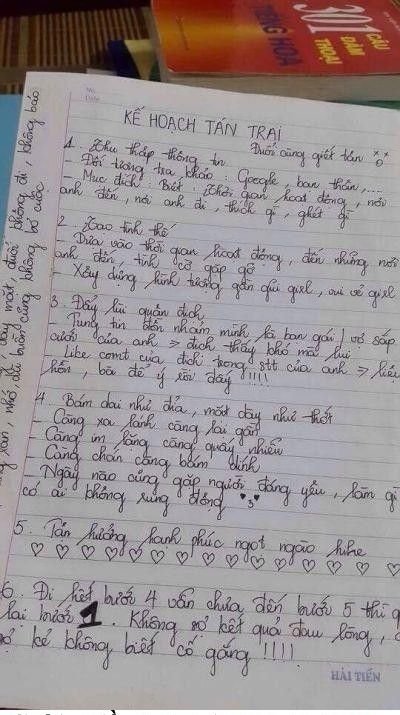 301 CÂU ĐÀM THOẠI TIẾNG HOA
No.
Date.
KẾ HOẠCH TÁN TRAI
Đuổi cùng giết tận
1. Thu thập thông tin
- Đối tượng tra khảo: Google, bạn thân,....
- Mục đích: Biết: Thời gian hoạt động, nơi
anh đến, nơi anh đi, thích gì, ghét gì
2. Tạo tình thế
- Dựa vào thời gian hoạt động, đến những nơi
anh đến, tình cờ gặp gỡ
- Xây dựng hình tượng gần gũi girl, vui vẻ girl
3. Đẩy lùi quân địch
- Tung tin đồn nhảm mình là bạn gái / vợ sắp
cưới của anh => địch thấy khó mà lui
- Like comt của địch trong stt của anh => liệu
hồn, bà để ý rồi đấy !!!!
4. Bám dai như đỉa, mặt dày như thớt
- Càng xa lánh càng lại gần
- Càng im lặng càng quấy nhiễu
- Càng chán càng bám dính
- Ngày nào cũng gặp người đáng yêu, làm gì
có ai không rung động
5. Tận hưởng hạnh phúc ngọt ngào hihe
♡ ♡ ♡ ♡ ♡ ♡ ♡ ♡ ♡ ♡ ♡ ♡ ♡ ♡
6. Đi hết bước 4 vẫn chưa đến bước 5 thì q
lại bước 1. Không sợ kết quả đau lòng,
sợ kẻ không biết cố gắng !!!!
HẢI TIẾN
mặt, đuổi không đi, không bao
nhỏ, dù biển cũng không bỏ cuộc